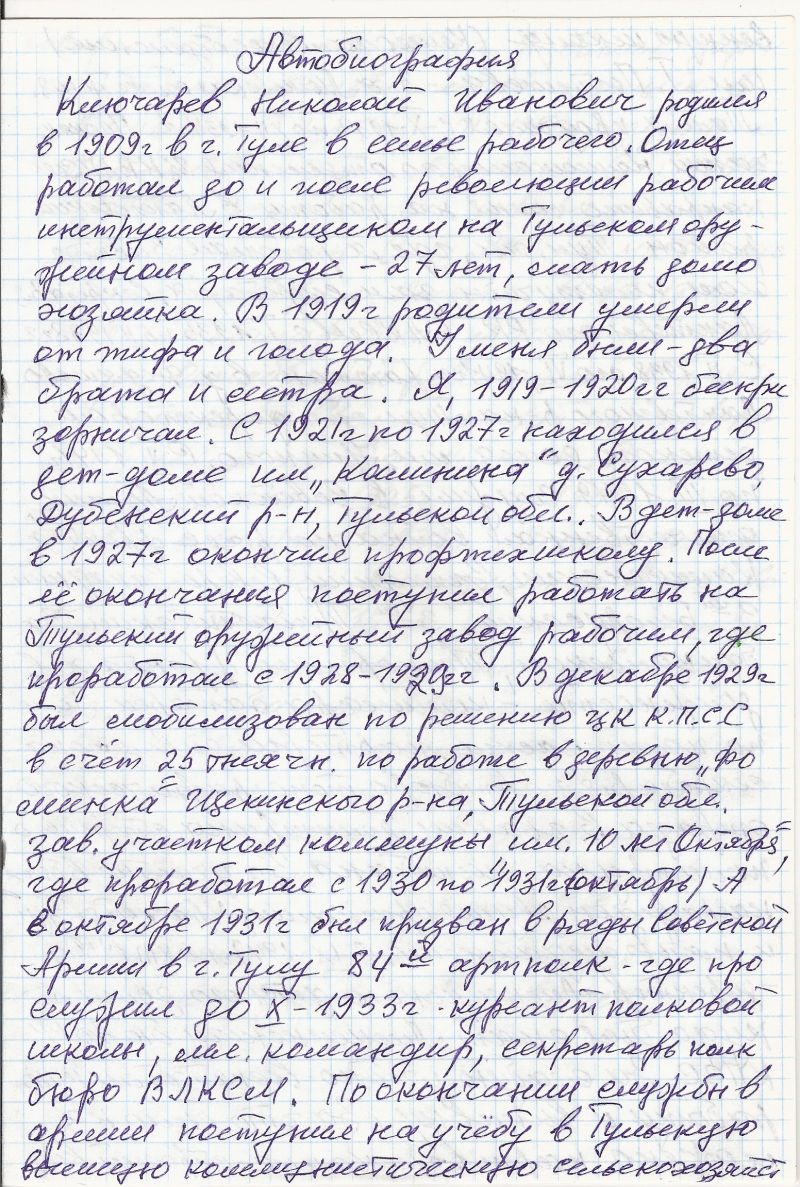 Автобиография
Ключарев Николай Иванович родился
в 1909г в г. Туле в семье рабочего. Отец
работал до и после революции рабочим
инструментальщиком на Тульском ору-
жейном заводе - 27 лет, мать домо
хозяйка. В 1919г родители умерли
от тифа и голода. У меня были - два
брата и сестра. Я, 1919-1920гг беспри
зорничал. С 1921г по 1927г находился в
дет-доме им „Калинина" д. Сухарево,
Дубенский р-н, Тульской обл.. В дет-доме
в 1927г окончил профтехшколу. После
её окончания поступил работать на
Тульский оружейный завод рабочим, где
проработал с 1928-1929гг. В декабре 1929г
был мобилизован по решению ЦК К.П.С.С
в счёт 25 тысячн. по работе в деревню „Фо
минка" Щекинского р-на, Тульской обл.
зав. участком коммуны им. 10 лет Октября",
где проработал с 1930 по 1931г (октябрь) А
в октябре 1931г был призван в ряды Советской
Армии в г. Тулу 84й артполк - где про
служил до X-1933г - курсант полковой
школы, мл. командир, секретарь полк
бюро ВЛКСМ. По окончании службы в
армии поступил на учёбу в Тульскую
высшую коммунистическую сельскохозяйст